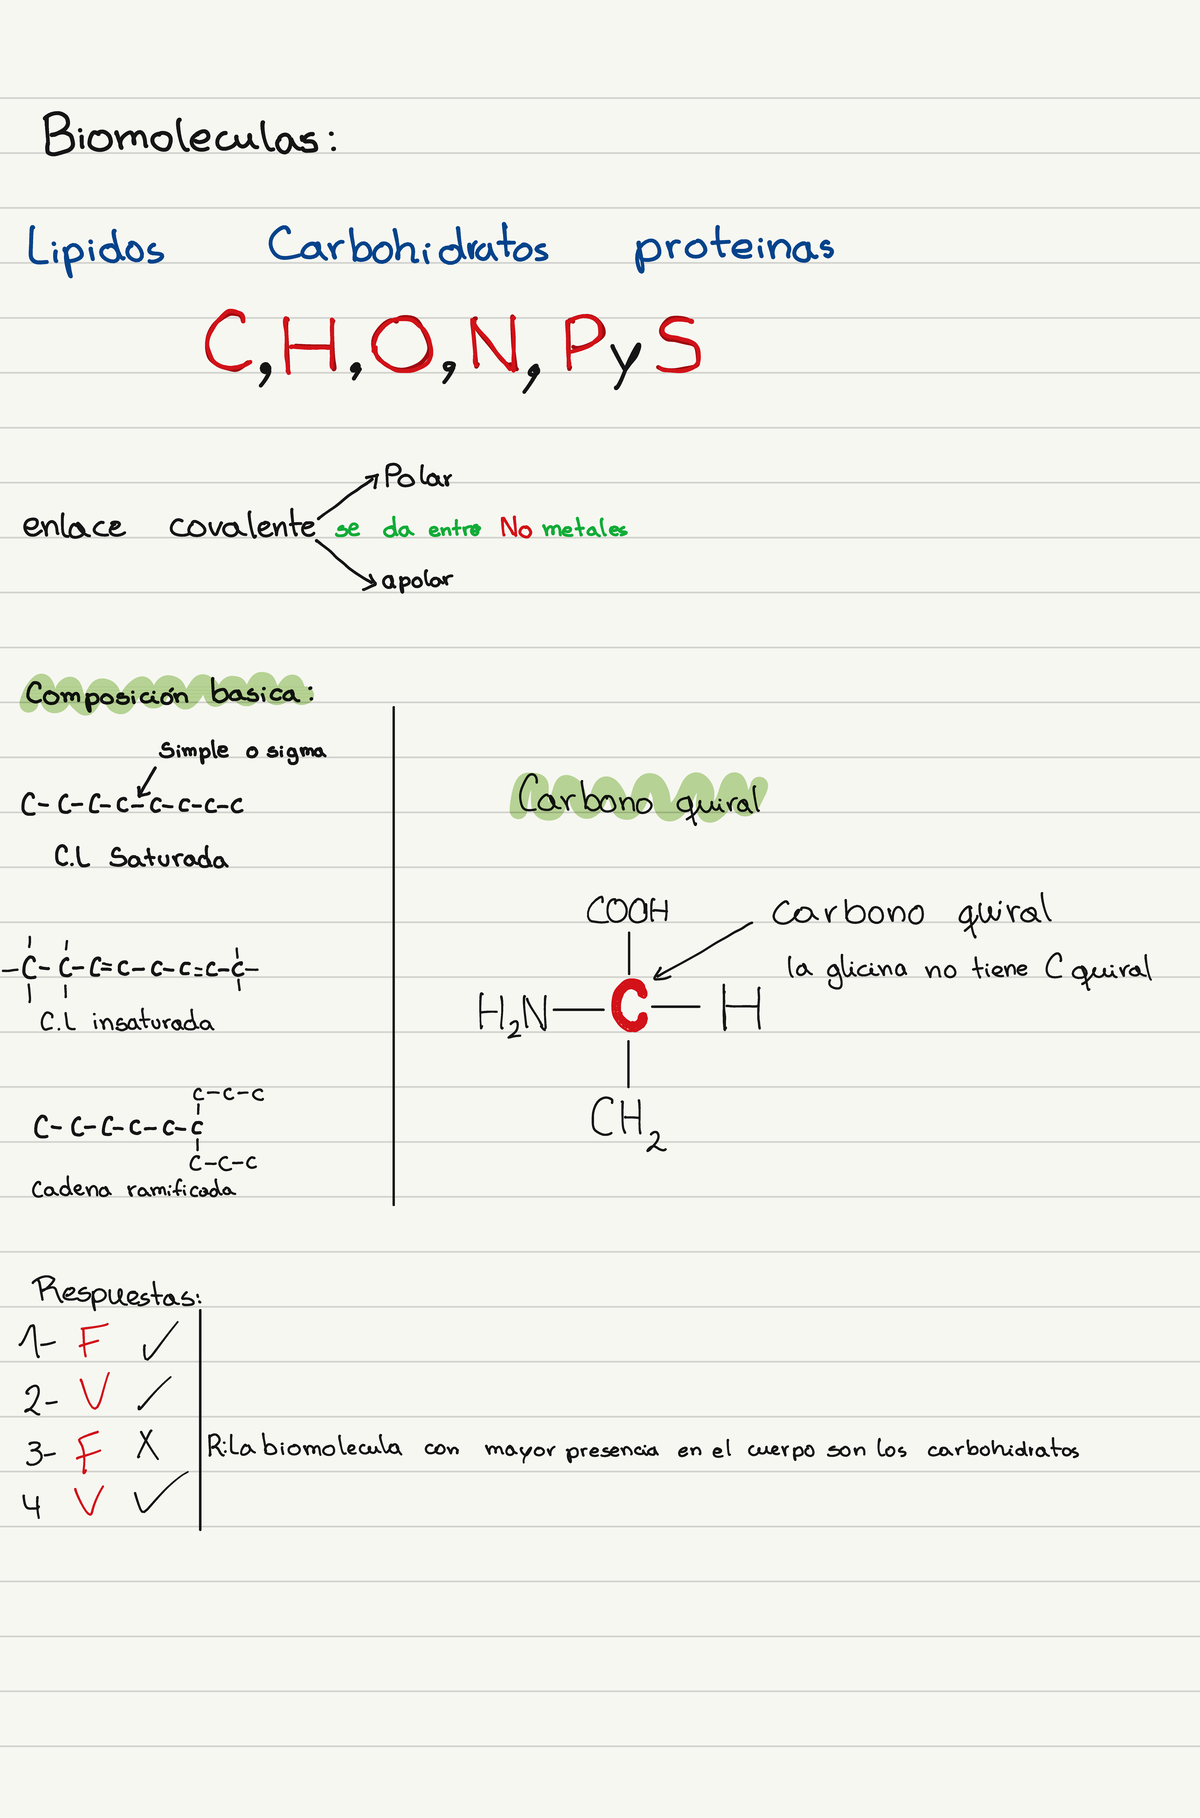 Biomoleculas:
Lipidos Carbohidratos proteinas
C, H, O, N, P y S
Polar
enlace covalente se da entre No metales
apolar
Composición basica:
Simple o sigma
C-C-C-C-C-C-C-C
C.L Saturada
-C-C-C=C-C-C=C-C-
C.L insaturada
C-C-C
C-C-C-C-C-C
C-C-C
Cadena ramificada
Carbono quiral
COOH
Carbono quiral
la glicina no tiene C quiral
H₂N-C-H
CH₂
Respuestas:
1- F ✓
2- V ✓
3- F X R:La biomolecula con mayor presencia en el cuerpo son los carbohidratos
4 V ✓